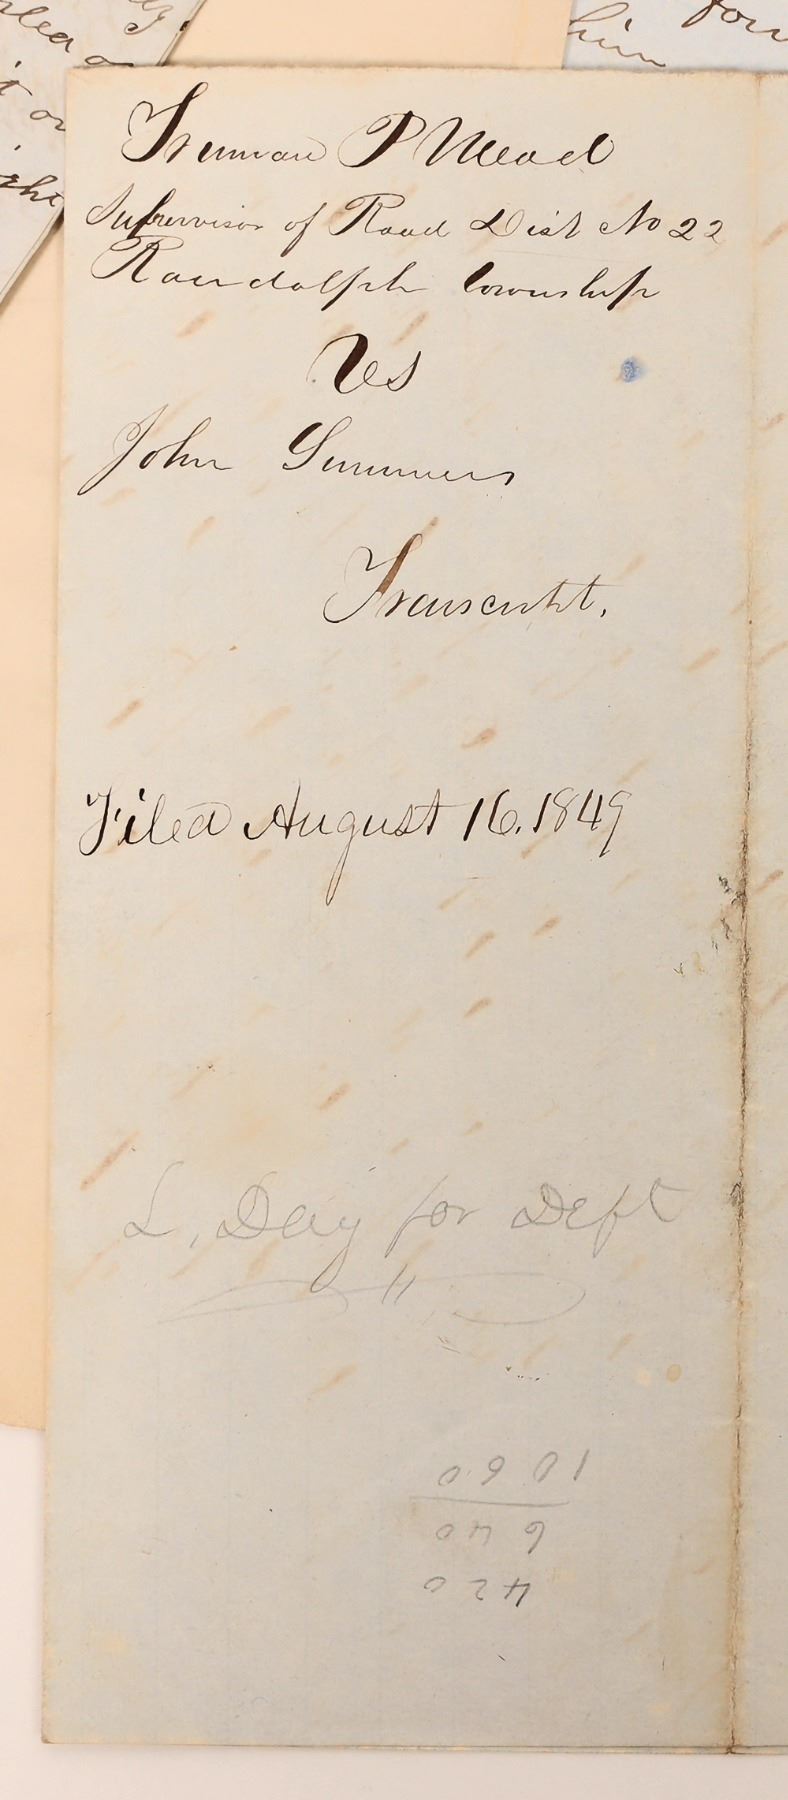 Truman P Mead
Supervisor of Road Dist No 22
Randolph township
Vs
John Summers
Transcript.
Filed August 16. 1849
L, Day for Deft
420
640
1060
for
him